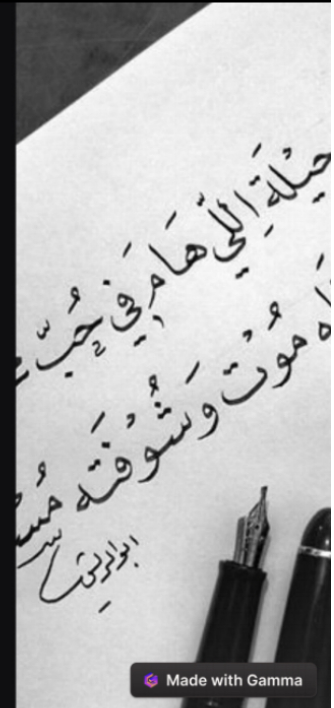 حيْلَةِ اللّي هَامٍ فَي حُبّ
مُوْت وَشُوْفَتَه
Made with Gamma